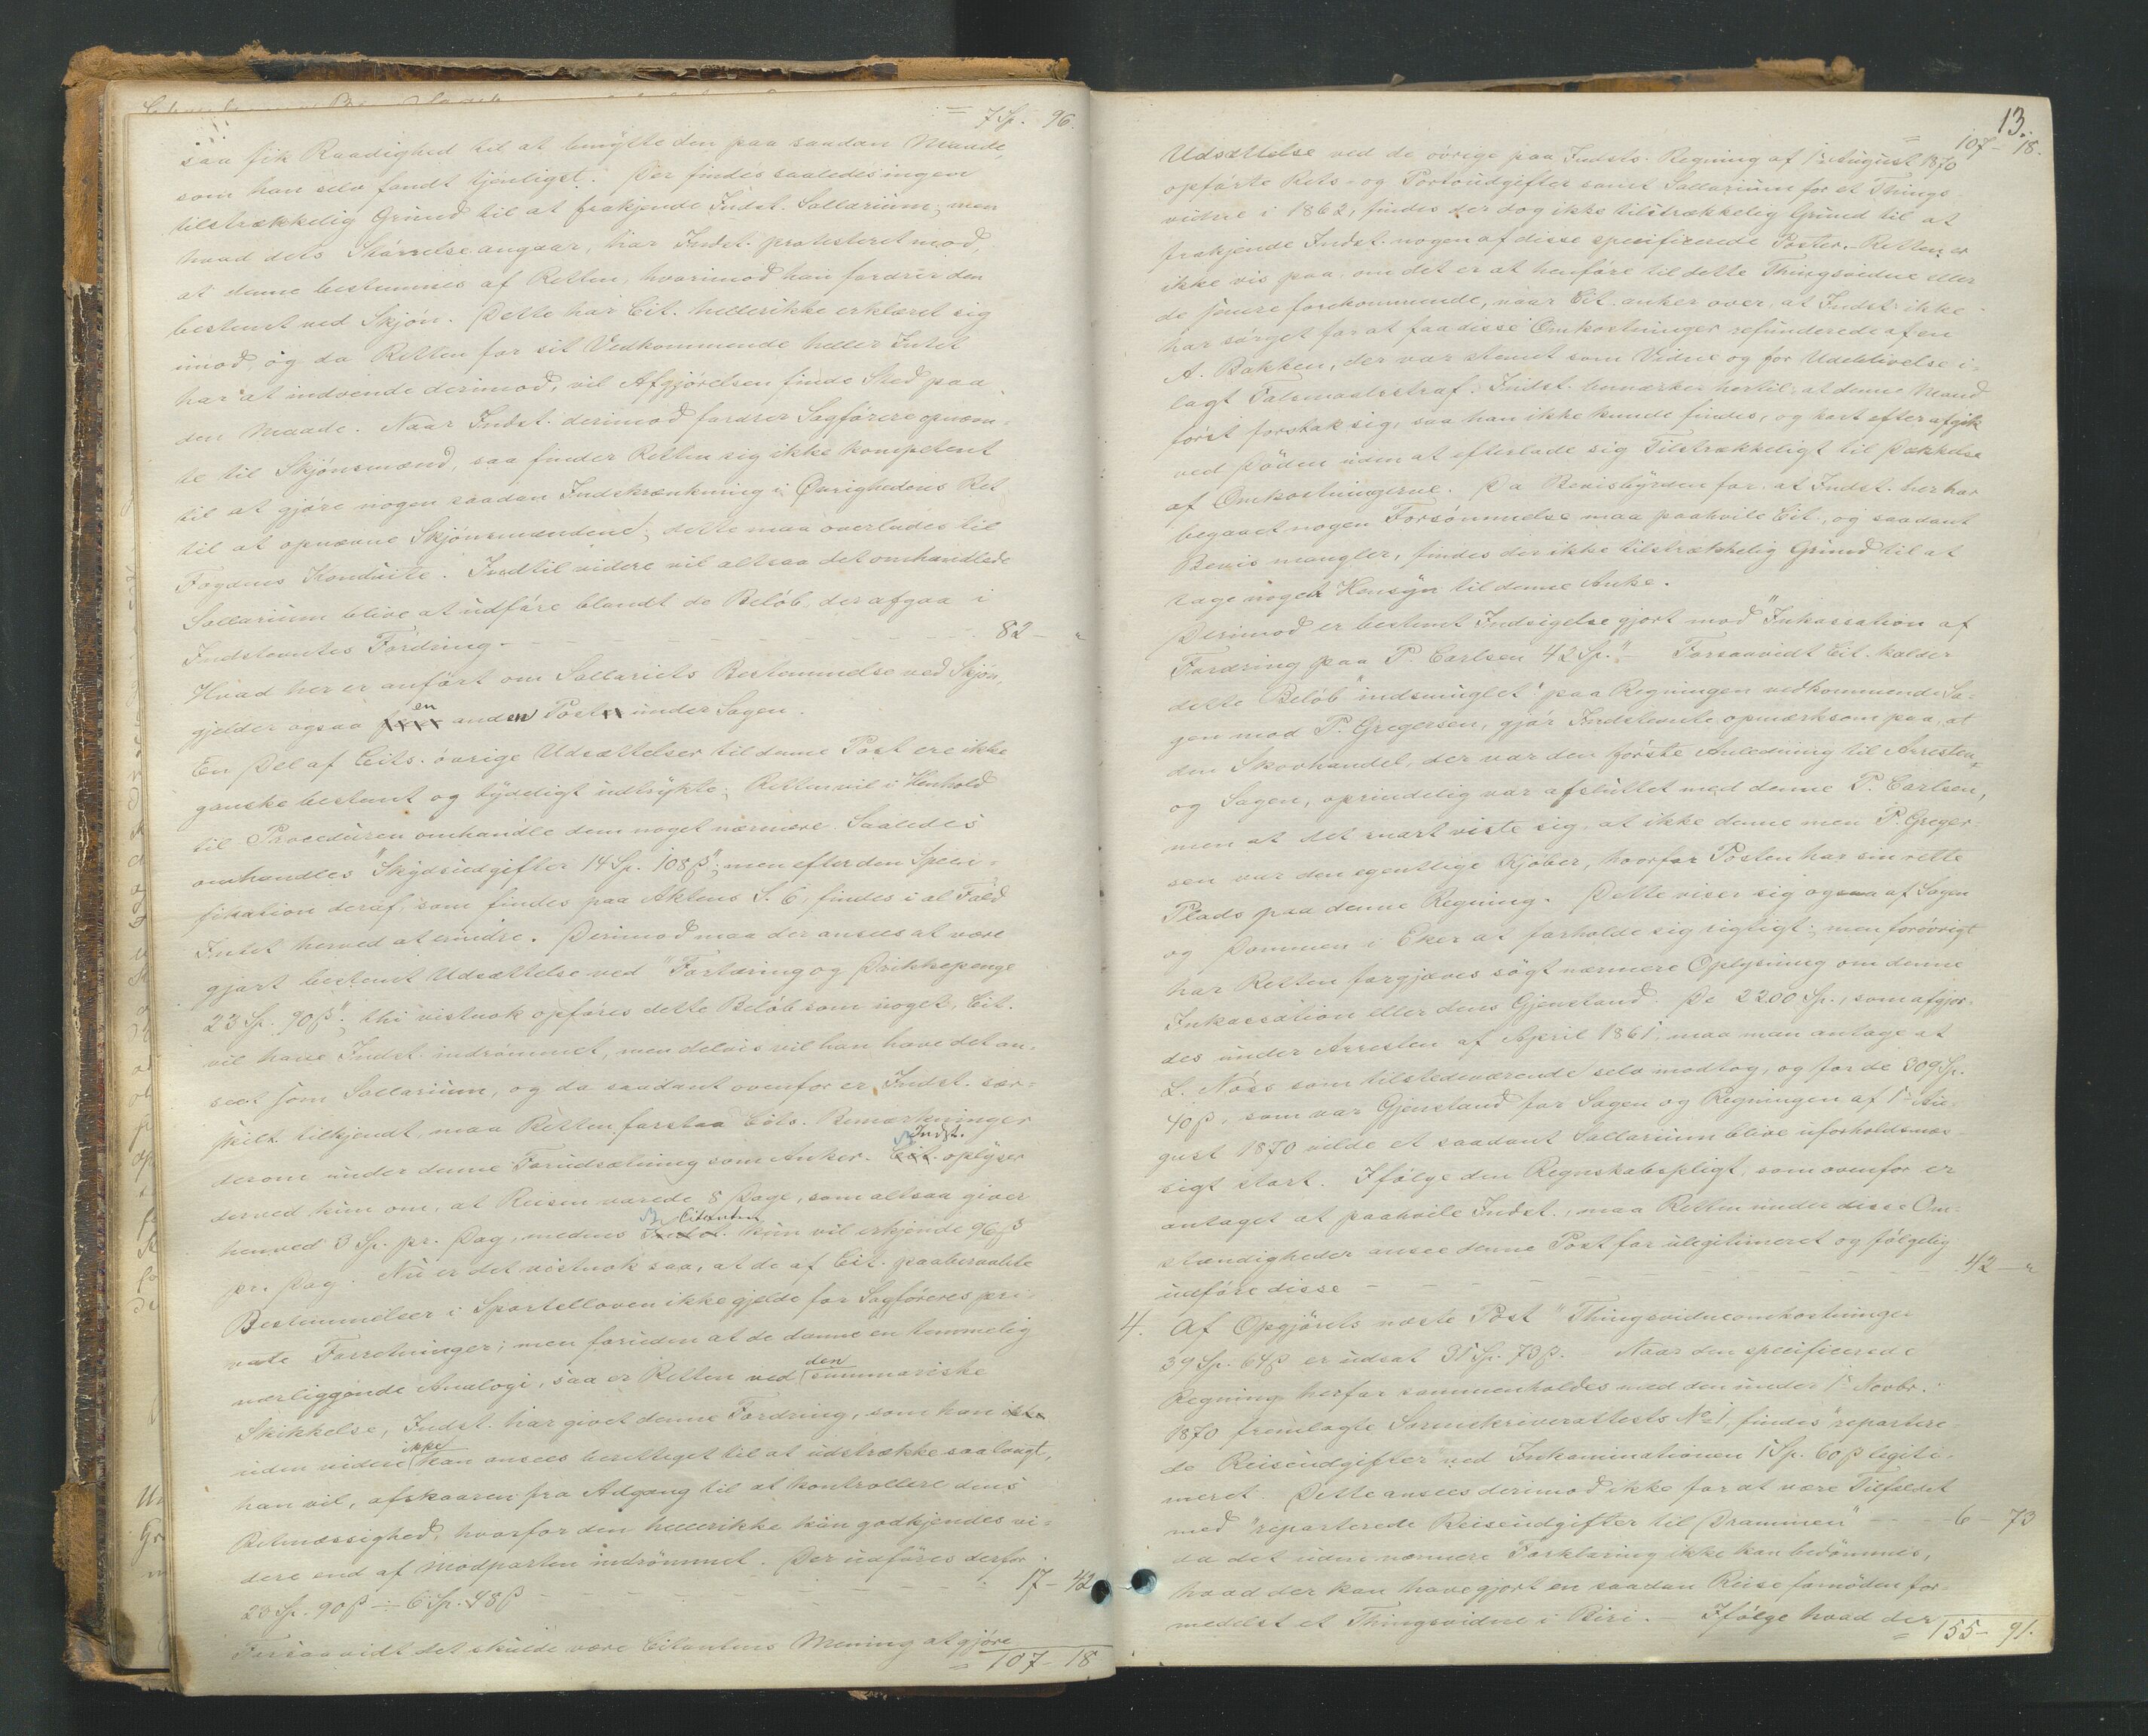 = 7 Sp. 96.
saa fik Raadighed til at benytte den paa saadan Maade,
som han selv fandt tjenligst. Der findes saaledes ingen
tilstrækkelig Grund til at frakjende Indst. Sallarium; men
hvad dets Størrelse angaar, har Indst. protesteret mod,
at denne bestemmes af Retten, hvorimod han fordrer den
bestemt ved Skjøn. Dette har Cit. hellerikke erklæret sig
imod, og da Retten for sit Vedkommende heller Intet
har at indvende derimod, vil Afgjørelsen finde Sted paa
den Maade. Naar Indst. derimod fordrer Sagførere opnævn-
te til Skjønsmænd, saa finder Retten sig ikke kompetent
til at gjøre nogen saadan Indskrænkning i Øvrighedens Ret
til at opnævne Skjønsmændene, dette maa overlades til
Fogdens Konduite. Indtil videre vil altsaa det omhandlede
Sallarium blive at udføre blandt de Beløb, der afgaa i
Indstevntes Fordring. 82 - "
Hvad her er anført om Sallariets Bestemmelse ved Skjøn,
gjelder ogsaa en anden Post under Sagen.
En Del af Cits. øvrige Udsættelser til denne Post ere ikke
ganske bestemt og tydeligt udtrykte; Retten vil i Henhold
til Proceduren omhandle dem noget nærmere. Saaledes
omhandles "Skydsudgifter 14 Sp. 108 β"; men efter den Speci-
fikation deraf, som findes paa Aktens S. 6, findes i al Fald
Intet herved at erindre. Derimod maa der ansees at være
gjort bestemt Udsættelse ved "Fortæring og Drikkepenge
23 Sp. 90 β"; thi vistnok opføres dette Beløb som noget, Cit.
vil have Indst. indrømmet, men delvis vil han have det an-
seet som Sallarium, og da saadant ovenfor er Indst. sær-
skilt tilkjendt, maa Retten forstaa Cits. Bemærkninger
derom under denne Forudsætning som Anker. Indst. oplyser
derved kun om, at Reisen varede 8 Dage, som altsaa giver
henved 3 Sp. pr. Dag, medens Citanten kun vil erkjende 96 β
pr. Dag. Nu er det vistnok saa, at de af Cit. paaberaabte
Bestemmelser i Sportelloven ikke gjelde for Sagføreres pri-
vate Forretninger; men foruden at de danne en temmelig
nærliggende Analogi, saa er Retten ved den summariske
Skikkelse, Indst. har givet denne Fordring, som han
uden videre ikke kan ansees berettiget til at udstrække saa langt,
han vil, afskaaren fra Adgang til at kontrollere dens
Retmæssighed, hvorfor den hellerikke kan godkjendes vi-
dere end af Modparten indrømmet. Der udføres derfor
23 Sp. 90 β ÷ 6 Sp. 48 β 17 - 42
Forsaavidt det skulde være Citantens Mening at gjøre
= 107 - 18
13.
= 107 - 18.
Udsættelse ved de øvrige paa Indsts. Regning af 1ste August 1870
opførte Rets- og Portoudgifter samt Sallarium for et Things-
vidne i 1862, findes der dog ikke tilstrækkelig Grund til at
frakjende Indst. nogen af disse specificerede Poster. Retten er
ikke vis paa, om det er at henføre til dette Thingsvidne eller
de senere forekommende, naar Cit. anker over, at Indst. ikke
har sørget for at faa disse Omkostninger refunderede af en
A. Bakken, der var stevnt som Vidne og for Udeblivelse i-
lagt Falsmaalsstraf. Indst. bemærker hertil, at denne Mand
først forstak sig, saa han ikke kunde findes, og kort efter afgik
ved Døden uden at efterlade sig Tilstrækkeligt til Dækkelse
af Omkostningerne. Da Bevisbyrden for at Indst. her har
begaaet nogen Forsømmelse maa paahvile Cit., og saadant
Bevis mangler, findes der ikke tilstrækkelig Grund til at
tage noget Hensyn til denne Anke.
Derimod er bestemt Indsigelse gjort mod "Inkassation af
Fordring paa P. Carlsen 42 Sp." Forsaavidt Cit. kalder
dette Beløb "indsmuglet" paa Regningen vedkommende Sa-
gen mod P. Gregersen, gjør Indstevnte opmærksom paa, at
den Skovhandel, der var den første Anledning til Arresten
og Sagen, oprindelig var afsluttet med denne P. Carlsen,
men at det snart viste sig, at ikke denne men P. Greger-
sen var den egentlige Kjøber, hvorfor Posten har sin rette
Plads paa denne Regning. Dette viser sig ogsaa af Sagen
og Dommen i Eker at forholde sig rigtigt; men forøvrigt
har Retten forgjæves søgt nærmere Oplysning om denne
Inkassation eller dens Gjenstand. De 2200 Sp., som afgjor-
des under Arresten af April 1861, maa man antage at
L. Næss som tilstedeværende selv modtog, og for de 309 Sp.
40 β, som var Gjenstand for Sagen og Regningen af 1ste Au-
gust 1870 vilde et saadant Sallarium blive uforholdsmæs-
sigt stort. Ifølge den Regnskabspligt, som ovenfor er
antaget at paahvile Indst., maa Retten under disse Om-
stændigheder ansee denne Post for ulegitimeret og følgelig
udføre disse 42 - "
4. Af Opgjørets næste Post "Thingsvidneomkostninger
39 Sp. 64 β er udsat 31 Sp. 73 β. - Naar den specificerede
Regning herfor sammenholdes med den under 1ste Novbr.
1870 fremlagte Sorenskriverattests No 1, findes "repartere-
de Reiseudgifter" ved Inkaminationen 1 Sp. 60 β legiti-
meret. Dette ansees derimod ikke for at være Tilfældet
med "reparterede Reiseudgifter til Drammen" 6 - 73
da det uden nærmere Forklaring ikke kan bedømmes,
hvad der kan have gjort en saadan Reise fornøden for-
medelst et Thingsvidne i Biri. - Ifølge hvad der
= 155 - 91.